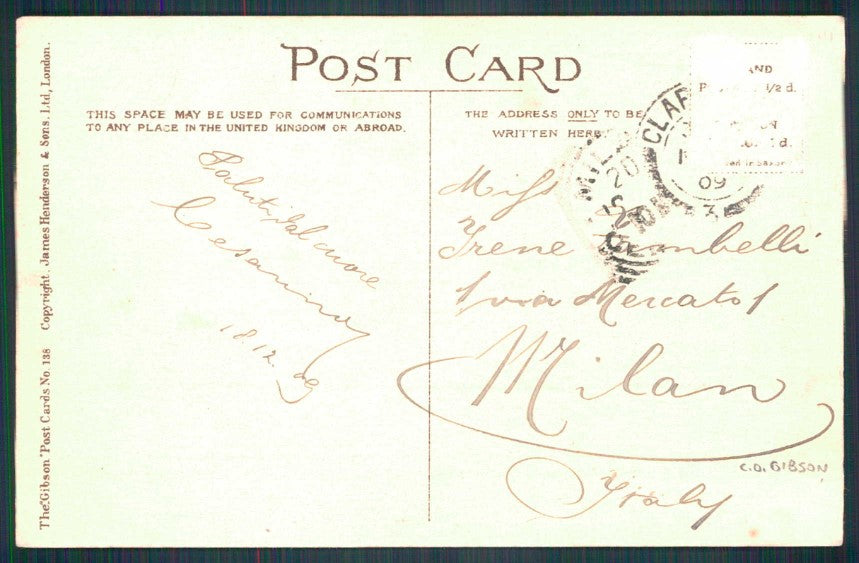 POST CARD
THIS SPACE MAY BE USED FOR COMMUNICATIONS
TO ANY PLACE IN THE UNITED KINGDOM OR ABROAD.
THE ADDRESS ONLY TO BE
WRITTEN HERE
Saluti dal cuore
Cesarina
18.12.09
Miss
Irene
1 via Mercato 1
Milan
Italy
C.D. GIBSON
CLAP
09
3
MIL
20
AND
1/2 d.
d.
The "Gibson" Post Cards No. 138 Copyright. James Henderson & Sons. Ltd, London.